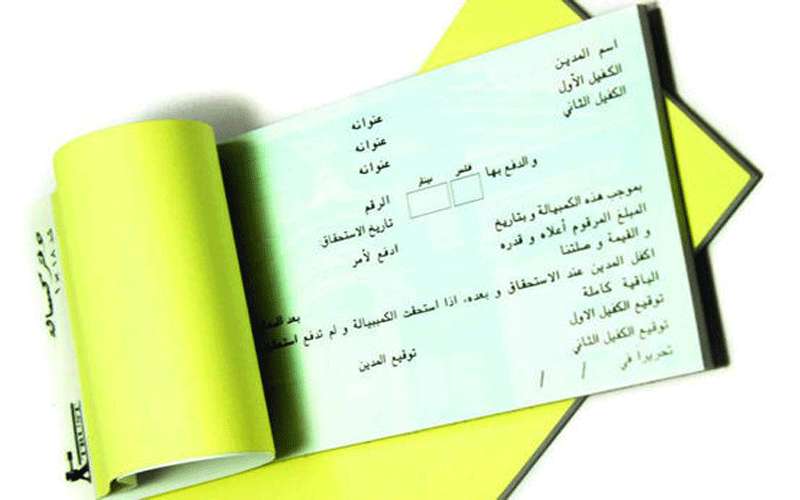 اسم المدين
الكفيل الأول
الكفيل الثاني
عنوانه
عنوانه
عنوانه
و الدفع بها
فلس
دينار
الرقم
بموجب هذه الكمبيالة و بتاريخ
تاريخ الاستحقاق
المبلغ المرقوم أعلاه و قدره
ادفع لأمر
و القيمة و صلتنا
اكفل المدين عند الاستحقاق و بعده، اذا استحقت الكمبيالة و لم تدفع
الباقية كاملة
توقيع الكفيل الاول
توقيع الكفيل الثاني
توقيع المدين
تحريرا في / /
TRUST